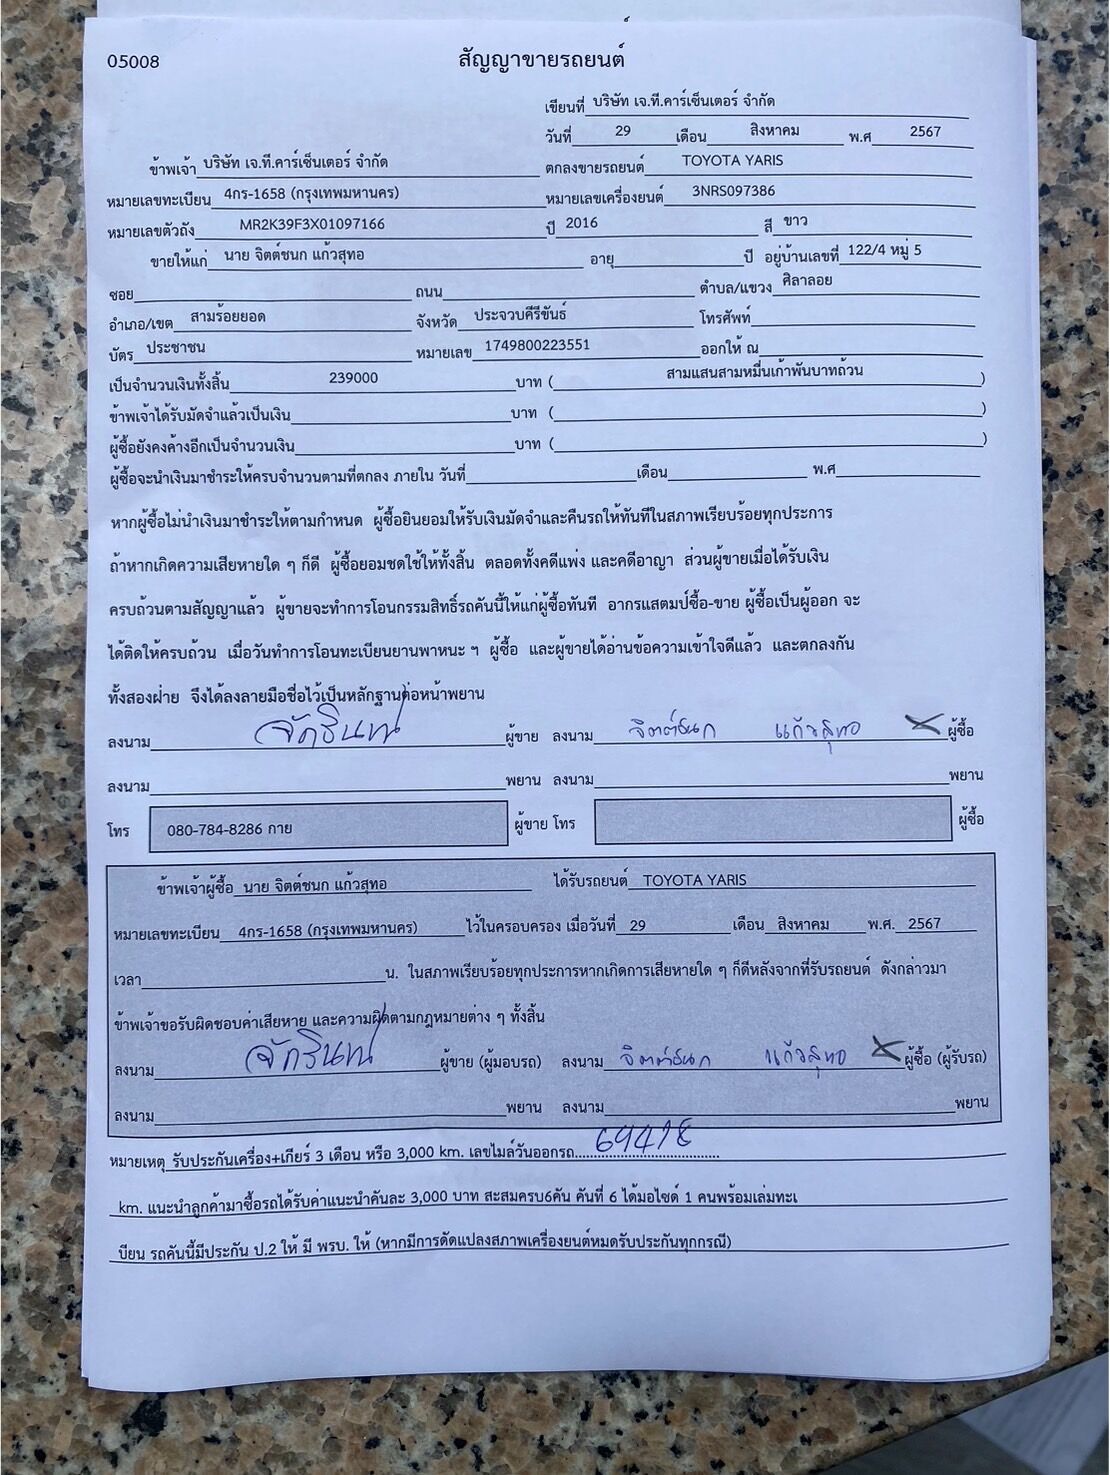 05008
สัญญาขายรถยนต์
เขียนที่ บริษัท เจ.ที.คาร์เซ็นเตอร์ จำกัด
วันที่ 29 เดือน สิงหาคม พ.ศ 2567
ข้าพเจ้า บริษัท เจ.ที.คาร์เซ็นเตอร์ จำกัด ตกลงขายรถยนต์ TOYOTA YARIS
หมายเลขทะเบียน 4กร-1658 (กรุงเทพมหานคร) หมายเลขเครื่องยนต์ 3NRS097386
หมายเลขตัวถัง MR2K39F3X01097166 ปี 2016 สี ขาว
ขายให้แก่ นาย จิตต์ชนก แก้วสุทอ อายุ ปี อยู่บ้านเลขที่ 122/4 หมู่ 5
ซอย ถนน ตำบล/แขวง ศิลาลอย
อำเภอ/เขต สามร้อยยอด จังหวัด ประจวบคีรีขันธ์ โทรศัพท์
บัตร ประชาชน หมายเลข 1749800223551 ออกให้ ณ
เป็นจำนวนเงินทั้งสิ้น 239000 บาท ( สามแสนสามหมื่นเก้าพันบาทถ้วน )
ข้าพเจ้าได้รับมัดจำแล้วเป็นเงิน บาท ( )
ผู้ซื้อยังคงค้างอีกเป็นจำนวนเงิน บาท ( )
ผู้ซื้อจะนำเงินมาชำระให้ครบจำนวนตามที่ตกลง ภายใน วันที่ เดือน พ.ศ
หากผู้ซื้อไม่นำเงินมาชำระให้ตามกำหนด ผู้ซื้อยินยอมให้รับเงินมัดจำและคืนรถให้ทันทีในสภาพเรียบร้อยทุกประการ
ถ้าหากเกิดความเสียหายใด ๆ ก็ดี ผู้ซื้อยอมชดใช้ให้ทั้งสิ้น ตลอดทั้งคดีแพ่ง และคดีอาญา ส่วนผู้ขายเมื่อได้รับเงิน
ครบถ้วนตามสัญญาแล้ว ผู้ขายจะทำการโอนกรรมสิทธิ์รถคันนี้ให้แก่ผู้ซื้อทันที อากรแสตมป์ซื้อ-ขาย ผู้ซื้อเป็นผู้ออก จะ
ได้ติดให้ครบถ้วน เมื่อวันทำการโอนทะเบียนยานพาหนะ ฯ ผู้ซื้อ และผู้ขายได้อ่านข้อความเข้าใจดีแล้ว และตกลงกัน
ทั้งสองฝ่าย จึงได้ลงลายมือชื่อไว้เป็นหลักฐานต่อหน้าพยาน
ลงนาม จักรินทน์ ผู้ขาย ลงนาม จิตต์ชนก แก้วสุทอ ผู้ซื้อ
ลงนาม พยาน ลงนาม พยาน
โทร 080-784-8286 กาย ผู้ขาย โทร ผู้ซื้อ
ข้าพเจ้าผู้ซื้อ นาย จิตต์ชนก แก้วสุทอ ได้รับรถยนต์ TOYOTA YARIS
หมายเลขทะเบียน 4กร-1658 (กรุงเทพมหานคร) ไว้ในครอบครอง เมื่อวันที่ 29 เดือน สิงหาคม พ.ศ. 2567
เวลา น. ในสภาพเรียบร้อยทุกประการหากเกิดการเสียหายใด ๆ ก็ดีหลังจากที่รับรถยนต์ ดังกล่าวมา
ข้าพเจ้าขอรับผิดชอบค่าเสียหาย และความผิดตามกฎหมายต่าง ๆ ทั้งสิ้น
ลงนาม จักรินทน์ ผู้ขาย (ผู้มอบรถ) ลงนาม จิตต์ชนก แก้วสุทอ ผู้ซื้อ (ผู้รับรถ)
ลงนาม พยาน ลงนาม พยาน
หมายเหตุ รับประกันเครื่อง+เกียร์ 3 เดือน หรือ 3,000 km. เลขไมล์วันออกรถ
km. แนะนำลูกค้ามาซื้อรถได้รับค่าแนะนำคันละ 3,000 บาท สะสมครบ6คัน คันที่ 6 ได้มอไซด์ 1 คนพร้อมเล่มทะเ
บียน รถคันนี้มีประกัน ป.2 ให้ มี พรบ. ให้ (หากมีการดัดแปลงสภาพเครื่องยนต์หมดรับประกันทุกกรณี)